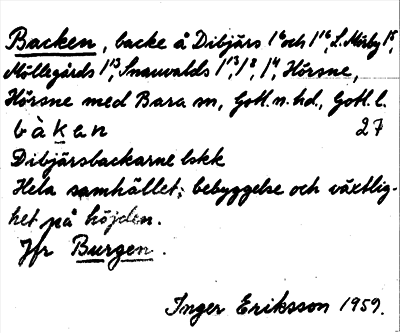 Backen, backe å Dibjärs 1⁶ och 1¹⁶, L. Mörby 1⁸,
Möllegårds 1¹³, Snauvalds 1¹³, 1⁸, 1⁴, Hörsne,
Hörsne med Bara sn, Gotl. n. hd, Gotl. l.
bàkan 27
Dibjärsbackarne lskk
Hela samhället; bebyggelse och växtlig-
het på höjden.
Jfr Burgen.
Inger Eriksson 1959.